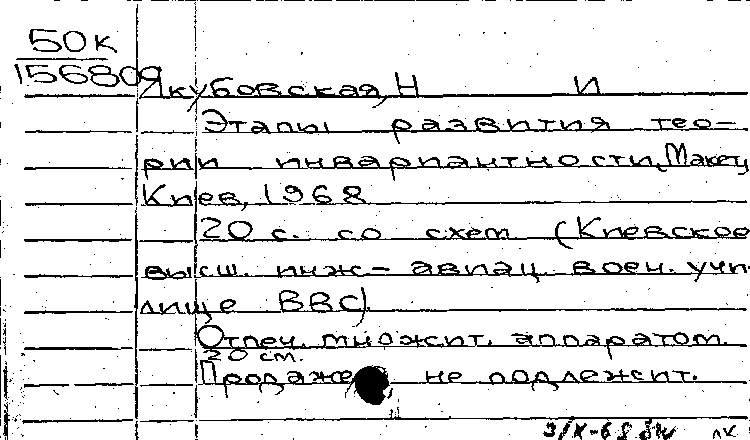 50к
156809
Якубовская, Н И
Этапы развития тео-
рии инвариантности, Макет
Киев, 1968
20 с. со схем (Киевское
высш. инж-авиац. воен. учи-
лище ВВС).
Отпеч. множит. аппаратом.
20 см.
Продаже не подлежит.